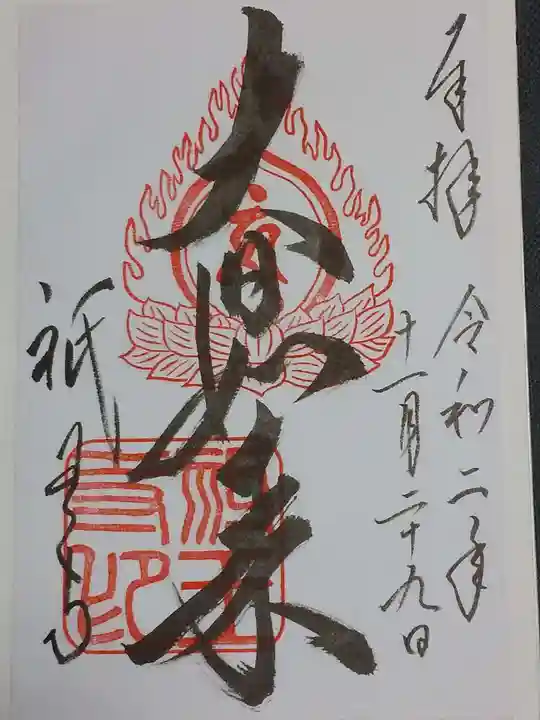 奉拝 令和二年
十一月二十九日
大日如来
祇王寺
祇王
寺印